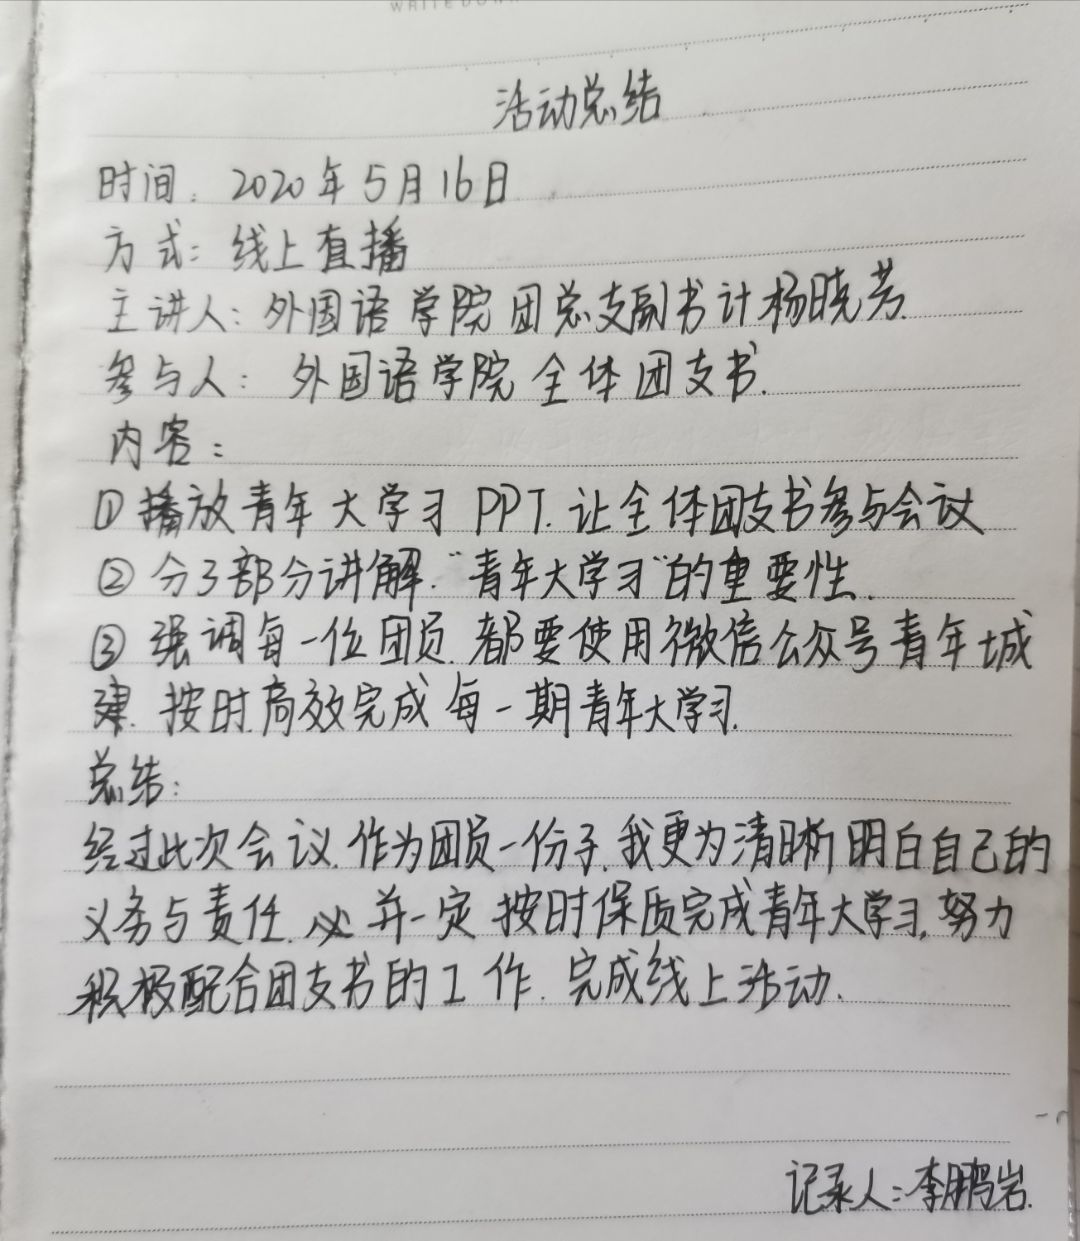 活动总结
时间:2020年5月16日
方式:线上直播
主讲人:外国语学院团总支副书计杨晓芳.
参与人:外国语学院全体团支书.
内容:
①播放青年大学习PPT.让全体团支书参与会议
②分3部分讲解.“青年大学习”的重要性.
③强调每一位团员.都要使用微信公众号青年城
建.按时.高效完成每一期青年大学习.
总结:
经过此次会议.作为团员一份子.我更为清晰明白自己的
义务与责任.并一定按时保质完成青年大学习,努力
积极配合团支书的工作.完成线上活动.
记录人:李鹏岩.